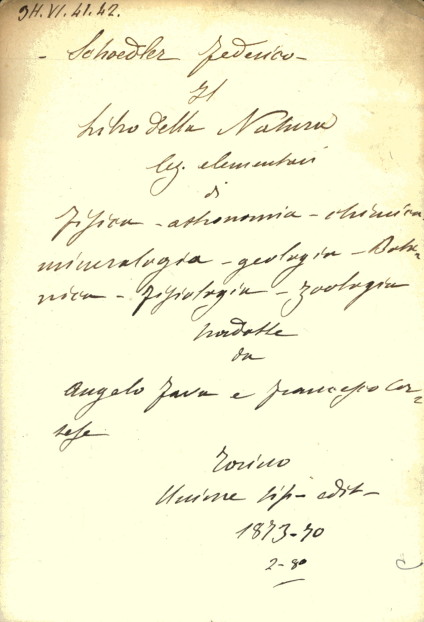 SH.VI.41.42.
- Schoedler Federico -
Il
Libro della Natura
lez. elementari
di
Fisica - astronomia - chimica -
mineralogia - geologia - Bota=
nica - Fisiologia - Zoologia
tradotte
da
Angelo Pavia e Francesco Cor=
tese
Torino
Unione tip - edit -
1873-70
2 - 8o